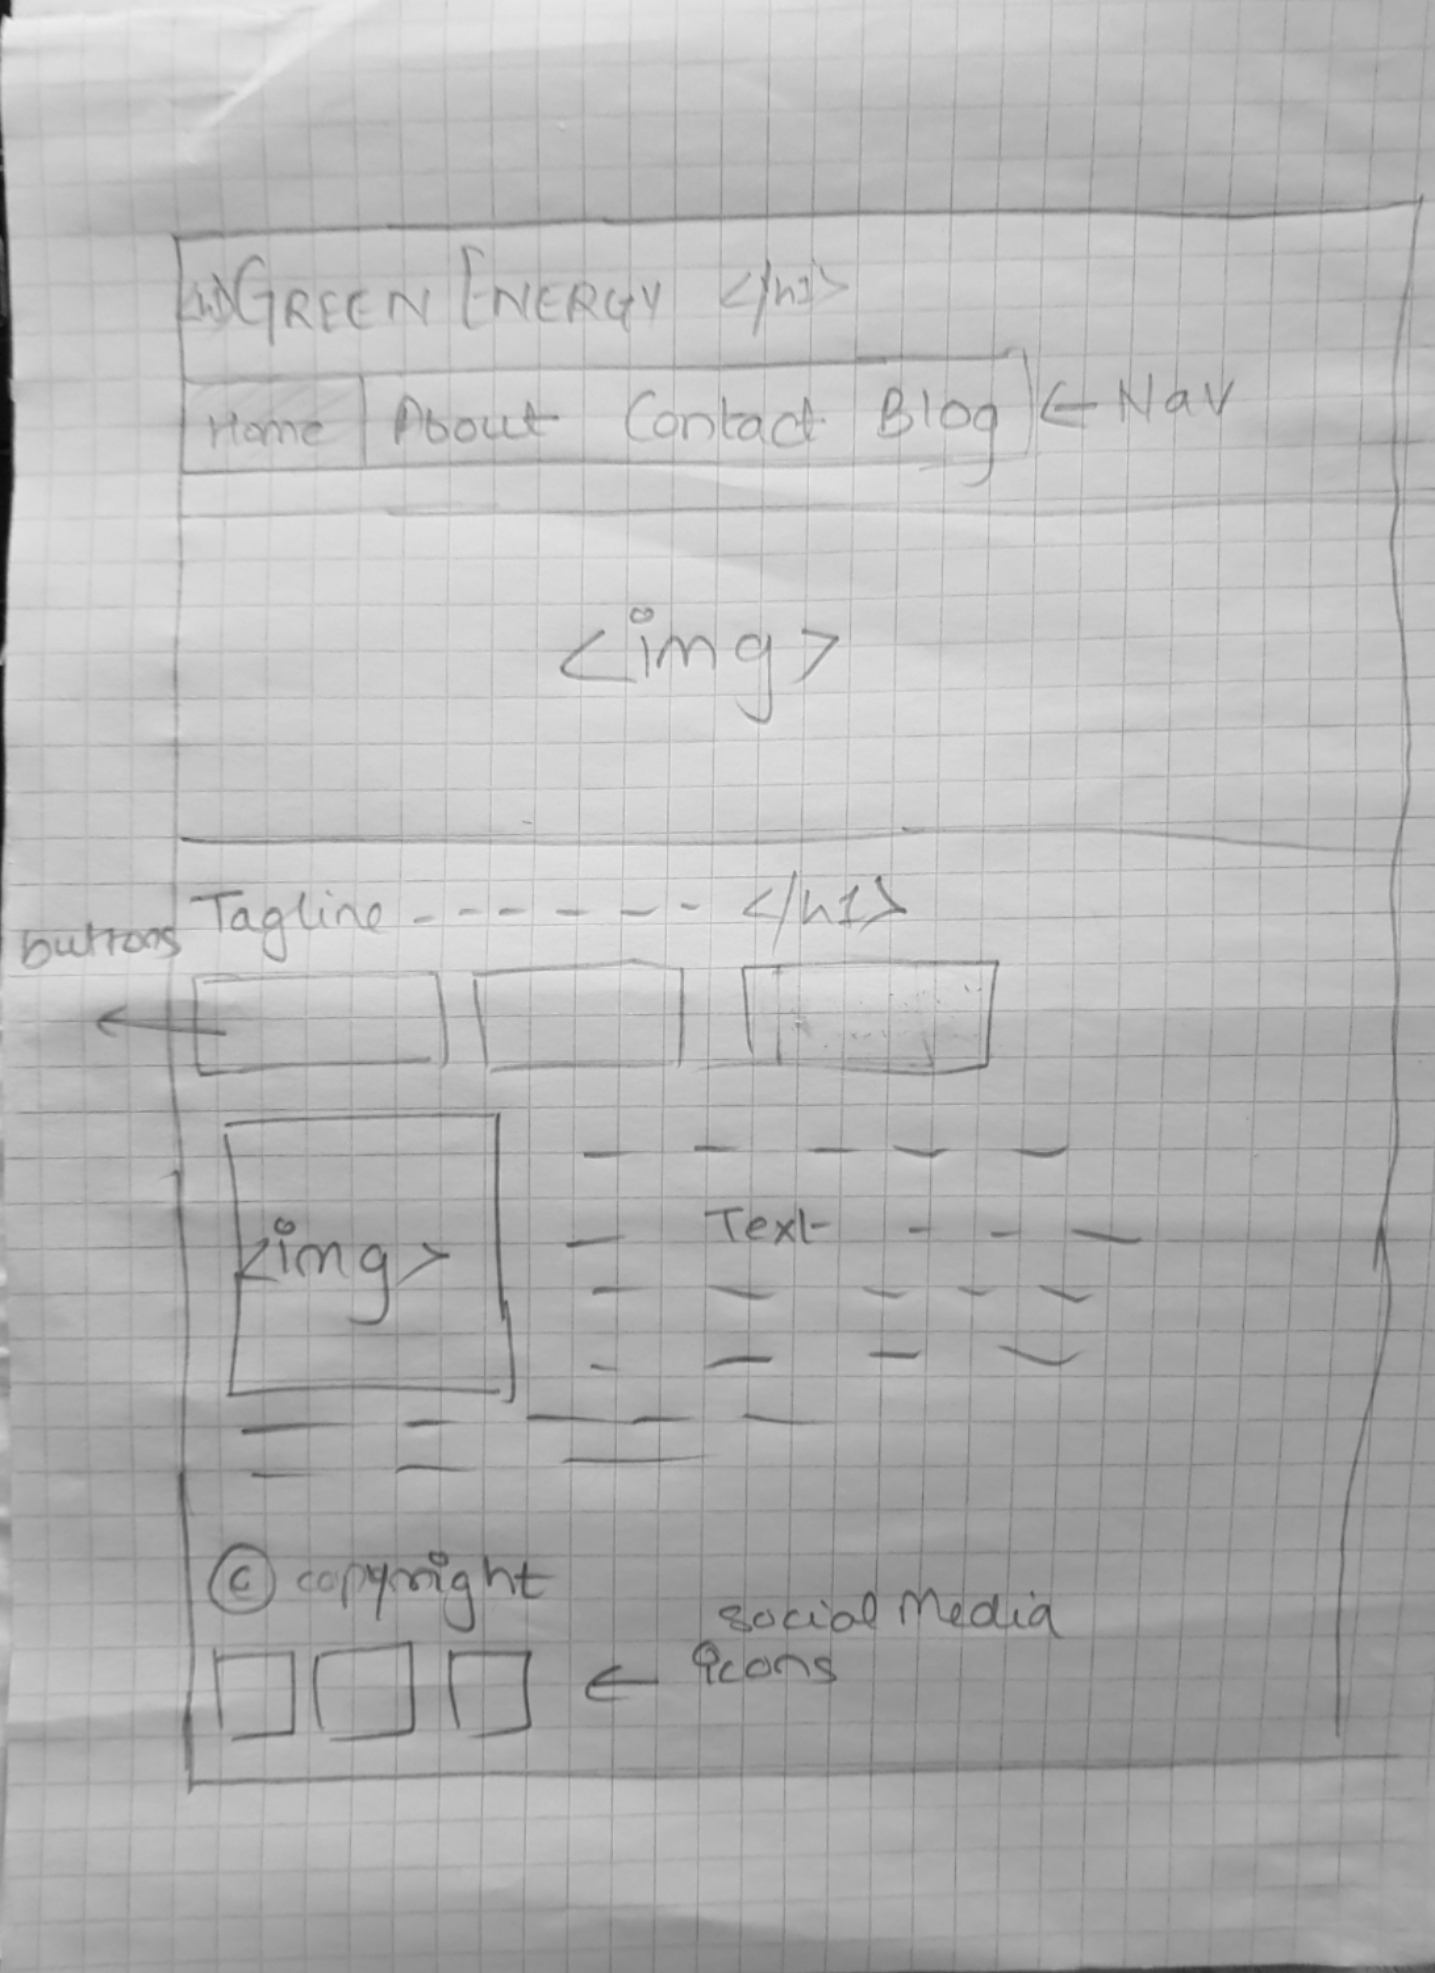 <h1>GREEN ENERGY </h1>
Home About Contact Blog ← Nav
<img>
Tagline - - - - - - </h1>
buttons
<img>
Text
© copyright
social Media
icons